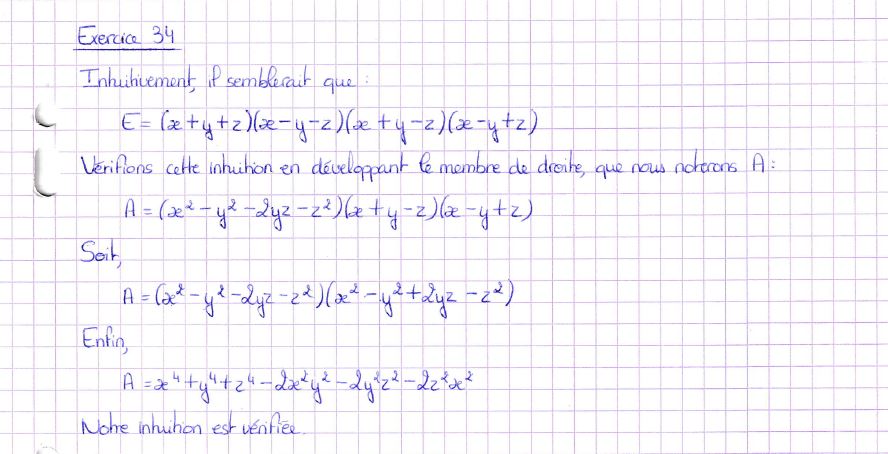 Exercice 34
Intuitivement, il semblerait que :
E = (x+y+z)(x-y-z)(x+y-z)(x-y+z)
Vérifions cette intuition en développant le membre de droite, que nous noterons A :
A = (x² - y² - 2yz - z²)(x+y-z)(x-y+z)
Soit,
A = (x² - y² - 2yz - z²)(x² - y² + 2yz - z²)
Enfin,
A = x⁴ + y⁴ + z⁴ - 2x²y² - 2y²z² - 2z²x²
Notre intuition est vérifiée.